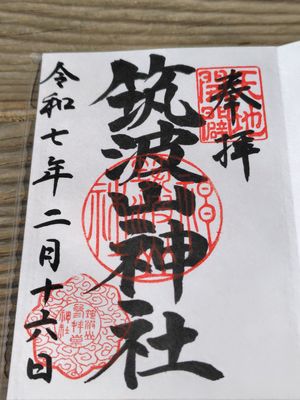 奉拝
天地開闢
筑波山神社
令和七年二月十六日